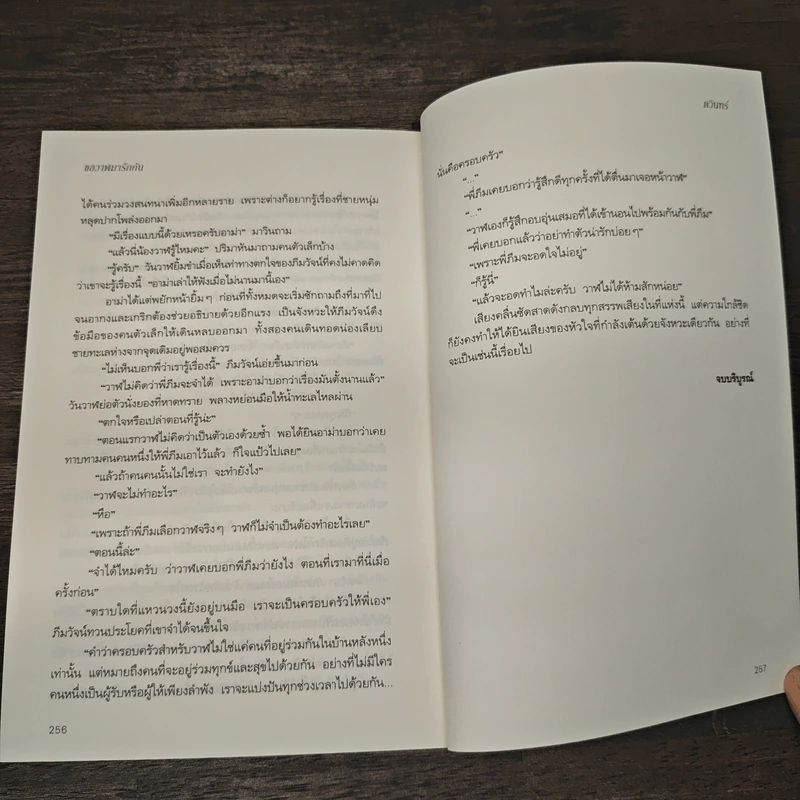 ขอวาฬมารักกัน
ได้คนร่วมวงสนทนาเพิ่มอีกหลายราย เพราะต่างก็อยากรู้เรื่องที่ชายหนุ่ม
หลุดปากโพล่งออกมา
“มีเรื่องแบบนี้ด้วยเหรอครับอาม่า” มาวินถาม
“แล้วนี่น้องวาฬรู้ไหมคะ” ปริมาหันมาถามคนตัวเล็กบ้าง
“รู้ครับ” วันวาฬยิ้มขำเมื่อเห็นท่าทางตกใจของภีมวัจน์ที่คงไม่คาดคิด
ว่าเขาจะรู้เรื่องนี้ “อาม่าเล่าให้ฟังเมื่อไม่นานมานี้เอง”
อาม่าได้แต่พยักหน้ายิ้มๆ ก่อนที่ทั้งหมดจะเริ่มซักถามถึงที่มาที่ไป
จนอากงและเกริกต้องช่วยอธิบายด้วยอีกแรง เป็นจังหวะให้ภีมวัจน์ดึง
ข้อมือของคนตัวเล็กให้เดินหลบออกมา ทั้งสองคนเดินทอดน่องเลียบ
ชายทะเลห่างจากจุดเดิมอยู่พอสมควร
“ไม่เห็นบอกพี่ว่าเรารู้เรื่องนี้” ภีมวัจน์เอ่ยขึ้นมาก่อน
“วาฬไม่คิดว่าพี่ภีมจะจำได้ เพราะอาม่าบอกว่าเรื่องมันตั้งนานแล้ว”
วันวาฬย่อตัวนั่งยองที่หาดทราย พลางหย่อนมือให้น้ำทะเลไหลผ่าน
“ตกใจหรือเปล่าตอนที่รู้น่ะ”
“ตอนแรกวาฬไม่คิดว่าเป็นตัวเองด้วยซ้ำ พอได้ยินอาม่าบอกว่าเคย
ทาบทามคนคนหนึ่งให้พี่ภีมเอาไว้แล้ว ก็ใจแป้วไปเลย”
“แล้วถ้าคนคนนั้นไม่ใช่เรา จะทำยังไง”
“วาฬจะไม่ทำอะไร”
“หือ”
“เพราะถ้าพี่ภีมเลือกวาฬจริงๆ วาฬก็ไม่จำเป็นต้องทำอะไรเลย”
“ตอนนี้ล่ะ”
“จำได้ไหมครับ ว่าวาฬเคยบอกพี่ภีมว่ายังไง ตอนที่เรามาที่นี่เมื่อ
ครั้งก่อน”
“ตราบใดที่แหวนวงนี้ยังอยู่บนมือ เราจะเป็นครอบครัวให้พี่เอง”
ภีมวัจน์ทวนประโยคที่เขาจำได้จนขึ้นใจ
“คำว่าครอบครัวสำหรับวาฬไม่ใช่แค่คนที่อยู่ร่วมกันในบ้านหลังหนึ่ง
เท่านั้น แต่หมายถึงคนที่จะอยู่ร่วมทุกข์และสุขไปด้วยกัน อย่างที่ไม่มีใคร
คนหนึ่งเป็นผู้รับหรือผู้ให้เพียงลำพัง เราจะแบ่งปันทุกช่วงเวลาไปด้วยกัน...
256
ตวินทร์
นั่นคือครอบครัว”
“...”
“พี่ภีมเคยบอกว่ารู้สึกดีทุกครั้งที่ได้ตื่นมาเจอหน้าวาฬ”
“...”
“วาฬเองก็รู้สึกอบอุ่นเสมอที่ได้เข้านอนไปพร้อมกันกับพี่ภีม”
“พี่เคยบอกแล้วว่าอย่าทำตัวน่ารักบ่อยๆ”
“เพราะพี่ภีมจะอดใจไม่อยู่”
“ก็รู้นี่”
“แล้วจะอดทำไมล่ะครับ วาฬไม่ได้ห้ามสักหน่อย”
เสียงคลื่นซัดสาดดังกลบทุกสรรพเสียงในที่แห่งนี้ แต่ความใกล้ชิด
ก็ยังคงทำให้ได้ยินเสียงของหัวใจที่กำลังเต้นด้วยจังหวะเดียวกัน อย่างที่
จะเป็นเช่นนี้เรื่อยไป
จบบริบูรณ์
257